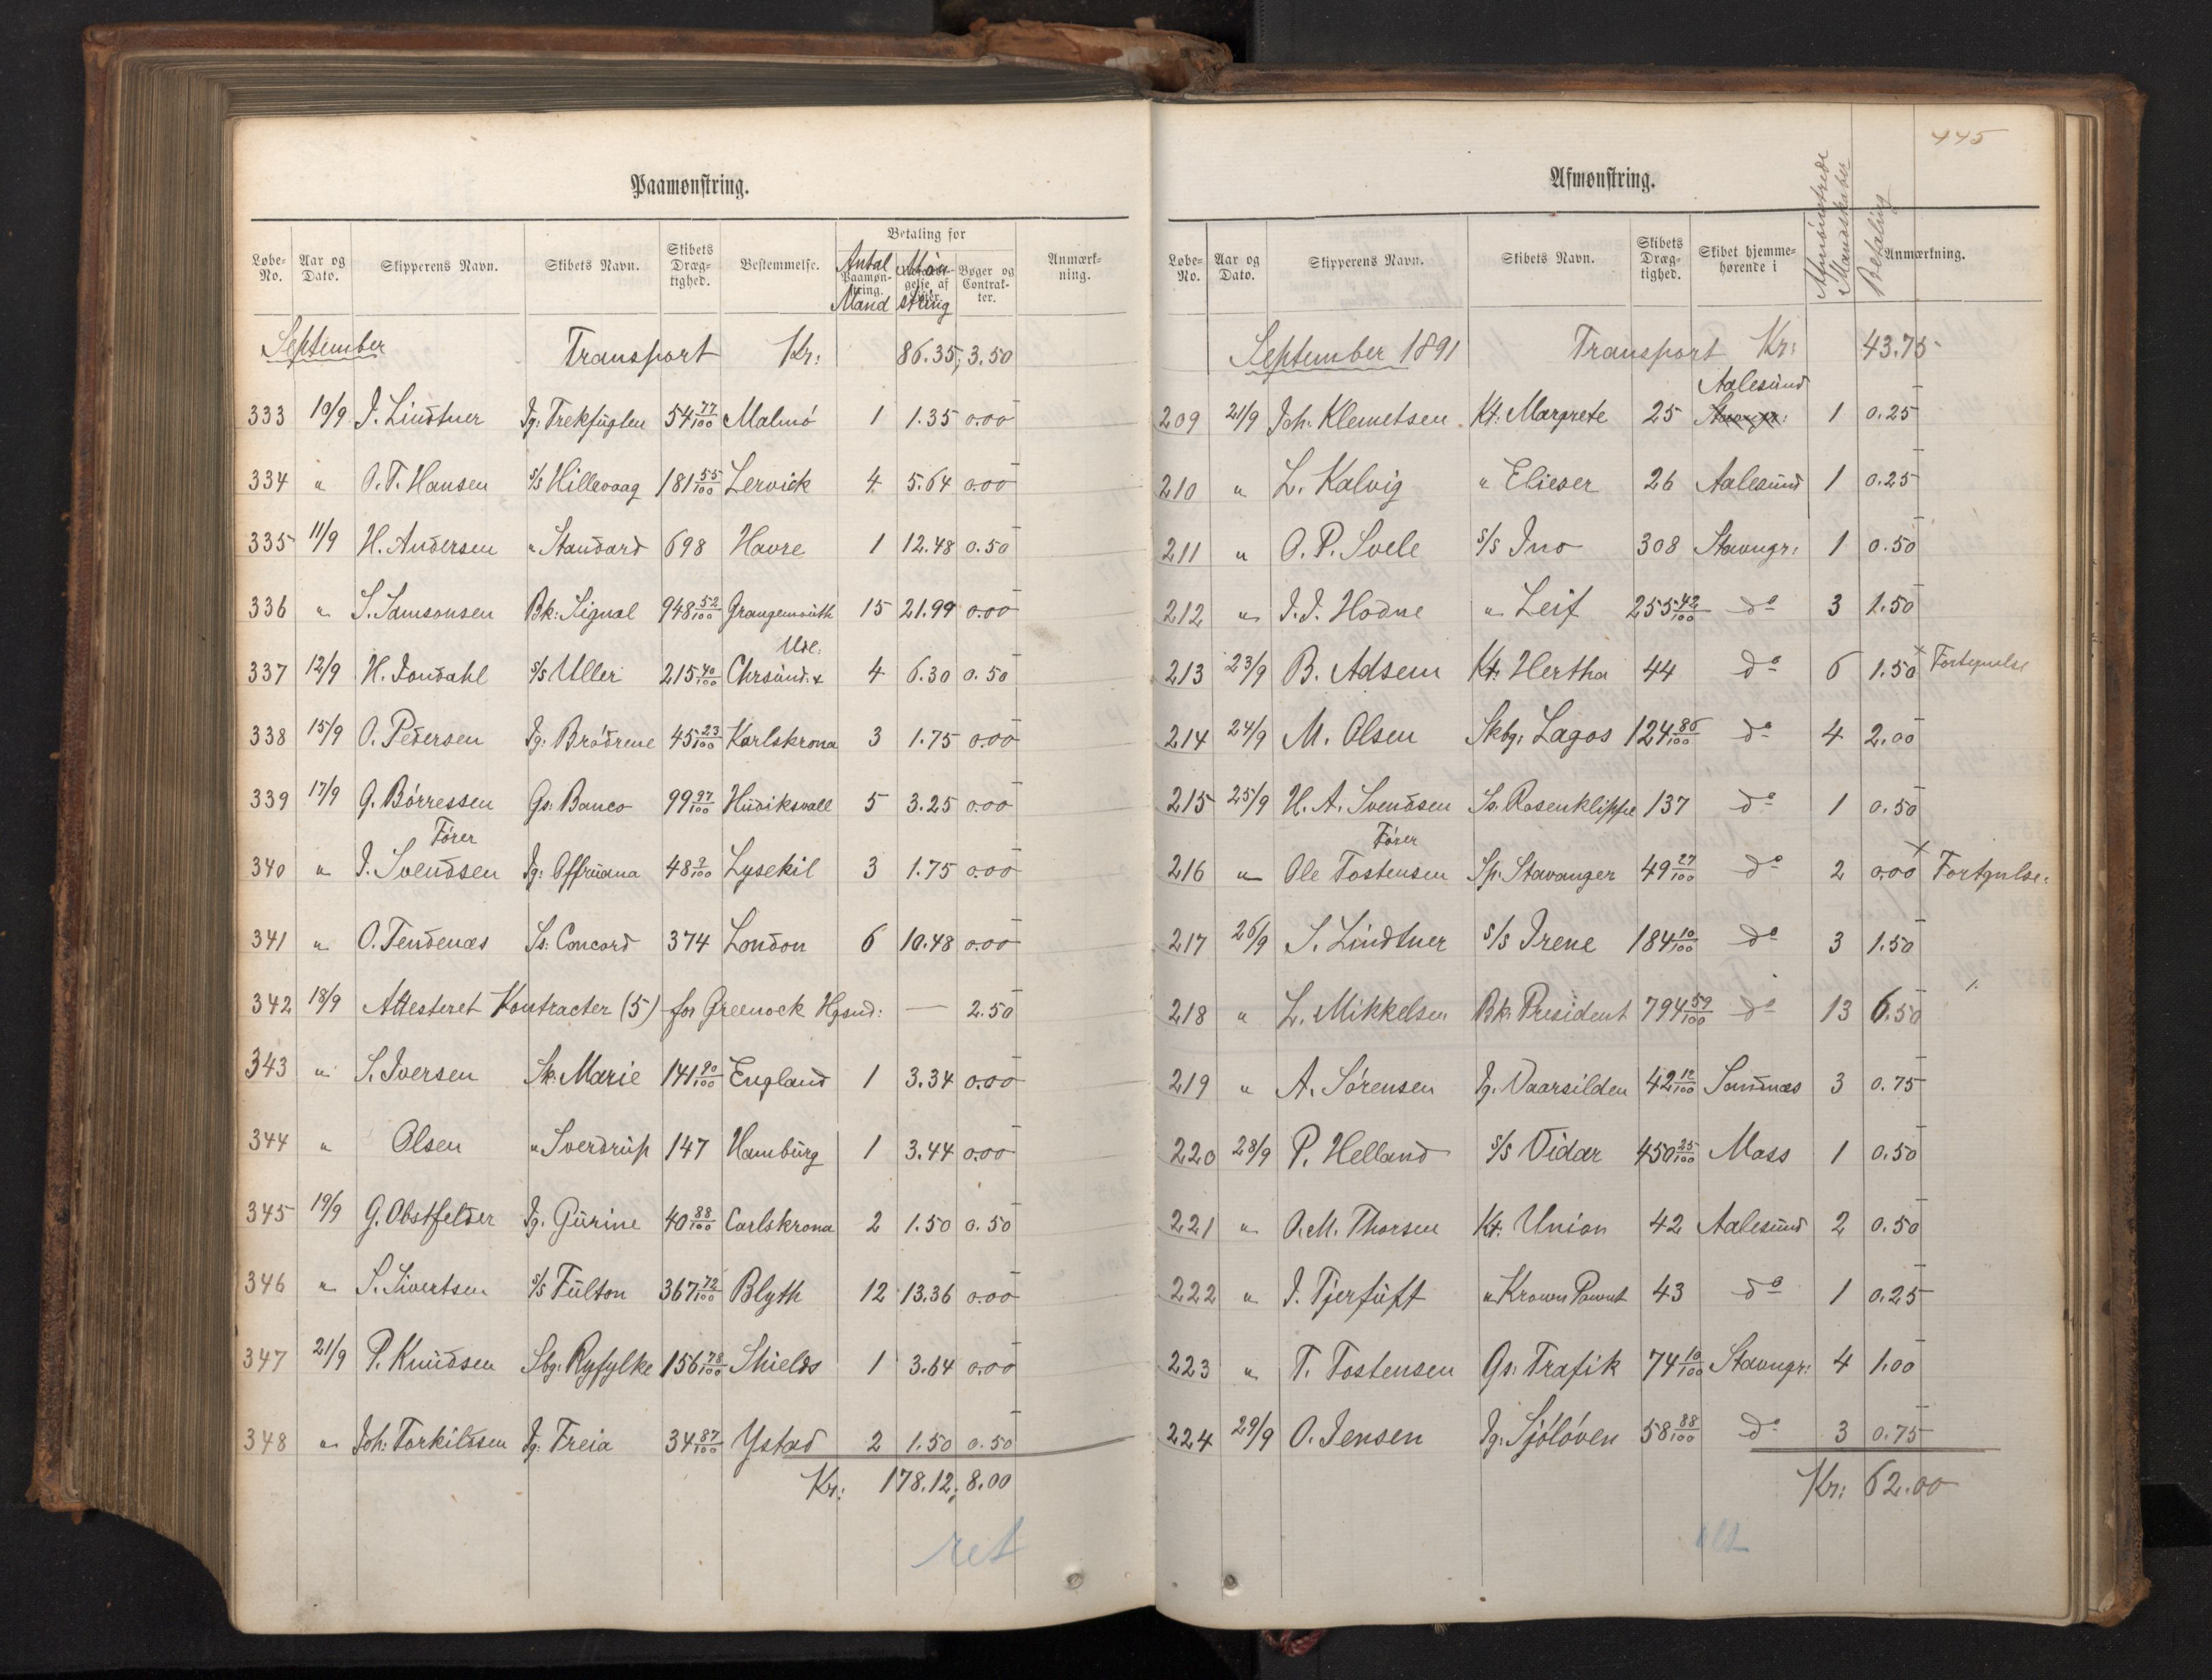 Paamønstring.
Løbe-No. Aar og Dato. Skipperens Navn. Skibets Navn. Skibets Dræg-tighed. Bestemmelse. Betaling for Paamøn-string. Antal Mand Møn string Bøger og Contrak-ter. Anmærk-ning.
September Transport Kr: 86.35; 3.50
333 10/9 J. Lindtner Jg: Trekfuglen 54 77/100 Malmö 1 1.35 0.00
334 " O. T. Hansen s/s Hillevaag 181 55/100 Lervick 4 5.64 0.00
335 11/9 H. Andersen " Standard 698 Havre 1 12.48 0.50
336 " S. Samsonsen Bk: Signal 948 52/100 Grangemouth 15 21.99 0.00
Udl:
337 12/9 H. Jondahl s/s Uller 215 40/100 Chrsund. x 4 6.30 0.50
338 15/9 O. Pedersen Jg: Brødrene 45 23/100 Karlskrona 3 1.75 0.00
339 17/9 G. Børressen Gs: Banco 99 97/100 Hudiksvall 5 3.25 0.00
Fører
340 " J. Svendsen Jg: Offruana 48 9/100 Lysekil 3 1.75 0.00
341 " O. Tendenæs Ss: Concord 374 London 6 10.48 0.00
342 18/9 Attesteret Kontracter (5) for Greenock Hgsnd: — 2.50
343 " S. Iversen Sk: Marie 141 90/100 England 1 3.34 0.00
344 " Olsen " Sverdrup 147 Hamburg 1 3.44 0.00
345 19/9 G. Obstfelder Jg. Gurine 40 88/100 Carlskrona 2 1.50 0.50
346 " S. Sivertsen s/s Fulton 367 72/100 Blyth 12 13.36 0.00
347 21/9 P. Knudsen Sbg: Ryfylke 156 78/100 Shields 1 3.64 0.00
348 " Joh: Torkildsen Jg: Freia 34 87/100 Ystad 2 1.50 0.50
Kr: 178.12; 8.00
ret
445
Afmønstring.
Løbe-No. Aar og Dato. Skipperens Navn. Skibets Navn. Skibets Dræg-tighed. Skibet hjemme-hørende i Afmönstrede Mandskaber Betaling Anmærkning.
September 1891 Transport Kr: 43.75
Aalesund
209 21/9 Joh: Klemetsen Kt: Margrete 25 Stavngr: 1 0.25
210 " L. Kalvig " Elieser 26 Aalesund 1 0.25
211 " O. P. Svele s/s Ino 308 Stavngr: 1 0.50
212 " J. J. Hodne " Leif 255 42/100 do 3 1.50
213 23/9 B. Adsem Kt: Hertha 44 do 6 1.50 x Fortynelse
214 24/9 M. Olsen Skbg: Lagos 124 86/100 do 4 2.00
215 25/9 H. A. Svendsen Ss. Rosenklippe 137 do 1 0.50
Fører
216 " Ole Tostensen Sp: Stavanger 49 27/100 do 2 0.00 x Fortynelse.
217 26/9 S. Lindtner s/s Irene 184 10/100 do 3 1.50
218 " L. Mikkelsen Bk: President 794 59/100 do 13 6.50
219 " A. Sørensen Jg. Vaarsilden 42 12/100 Sandnæs 3 0.75
220 28/9 P. Helland s/s Vidar 450 25/100 Moss 1 0.50
221 " O. M. Thorsen Kt: Union 42 Aalesund 2 0.50
222 " J. Tjerfuft " Krown 43 do 1 0.25
223 " T. Tostensen Gs: Trafik 74 10/100 Stavngr: 4 1.00
224 29/9 O. Jensen Jg: Sjøløven 58 88/100 do 3 0.75
Kr: 62.00